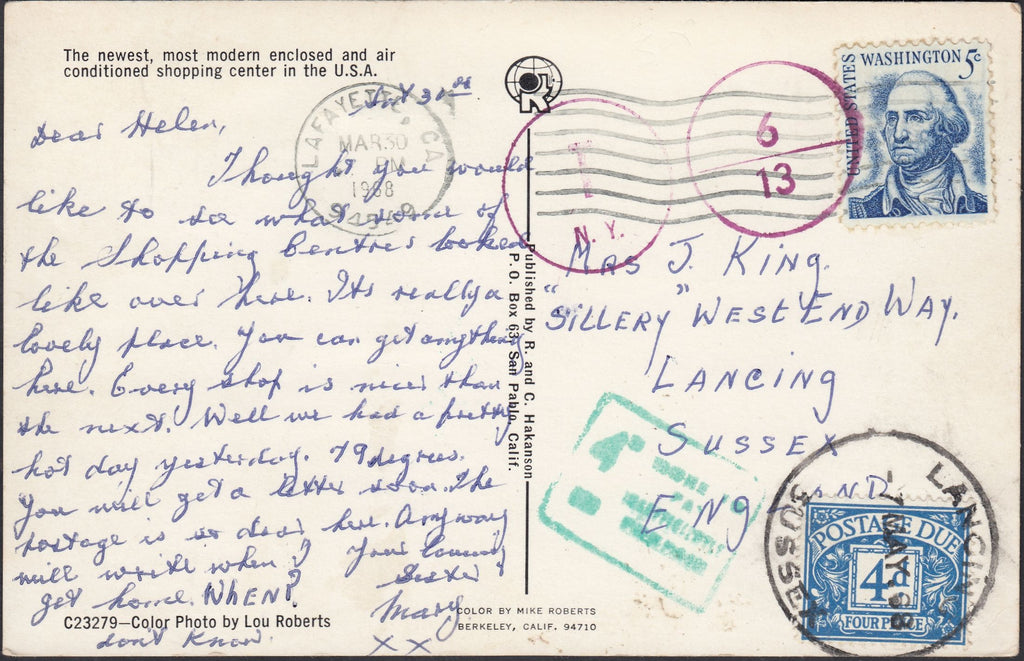 The newest, most modern enclosed and air
conditioned shopping center in the U.S.A.
Dear Helen,
Thought you would
like to see what some of
the Shopping Centres looked
like over here. Its really a
lovely place. You can get anything
here. Every shop is nicer than
the next. Well we had a pretty
hot day yesterday. 79 degrees.
You will get a letter soon. The
postage is so dear here. Anyway
will write when I
get home. WHEN?
don't know.
Your loving
Sister
Mary
X X
C23279—Color Photo by Lou Roberts
LAFAYETTE, CA
MAR 30
PM
1968
94549
Published by R. and C. Hakanson
P. O. Box 63, San Pablo, Calif.
COLOR BY MIKE ROBERTS
BERKELEY, CALIF. 94710
R
T
N. Y.
6
13
UNITED STATES
WASHINGTON 5c
MRS J. KING.
"SILLERY" WEST END WAY.
LANCING
SUSSEX
ENGLAND
4D
LANCING
-7 MAY 68
SUSSEX
POSTAGE DUE
4d
FOUR PENCE